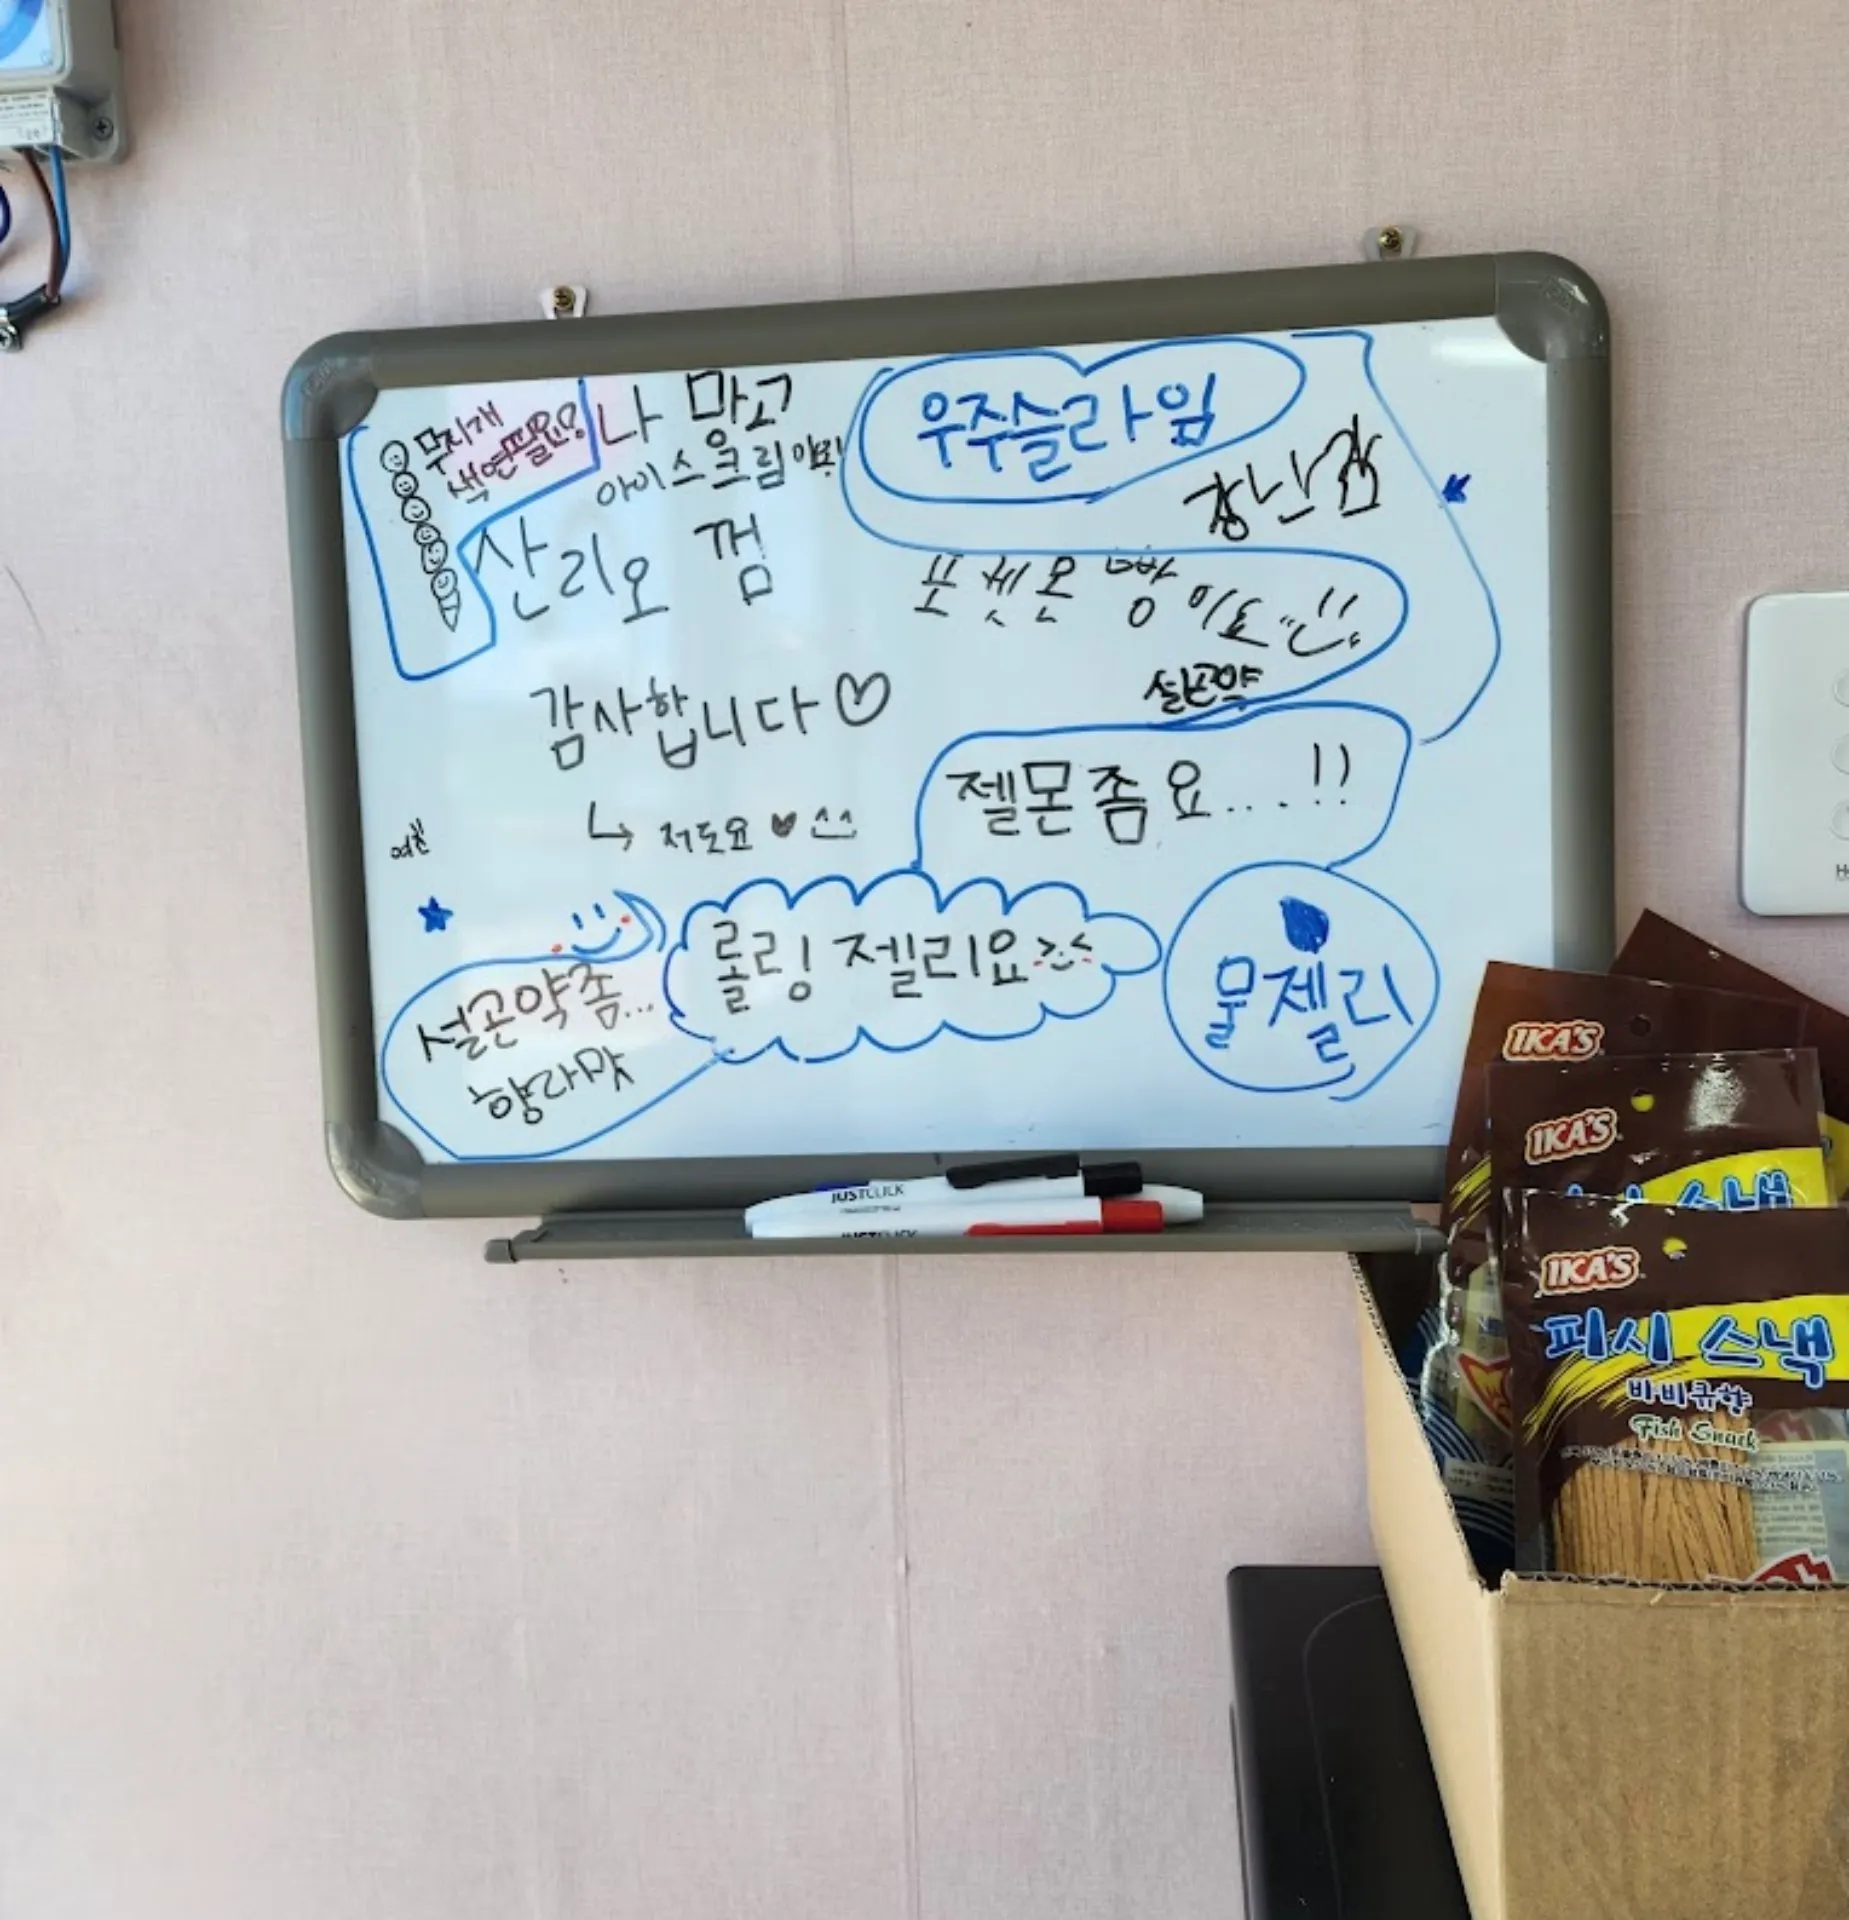 무지개
색연필요?
나 망고
아이스크림
산리오 껌
우주슬라임
장난감
포켓몬 빵이요!!
감사합니다♡
↳ 저도요 ♥ ^^
설곤약
젤몬좀요...!!
설곤약좀...
롤링 젤리요
물젤리
JUSTCLICK
JUSTCLICK
IKA'S
IKA'S
스낵
IKA'S
피시 스낵
바비큐향
Fish Snack